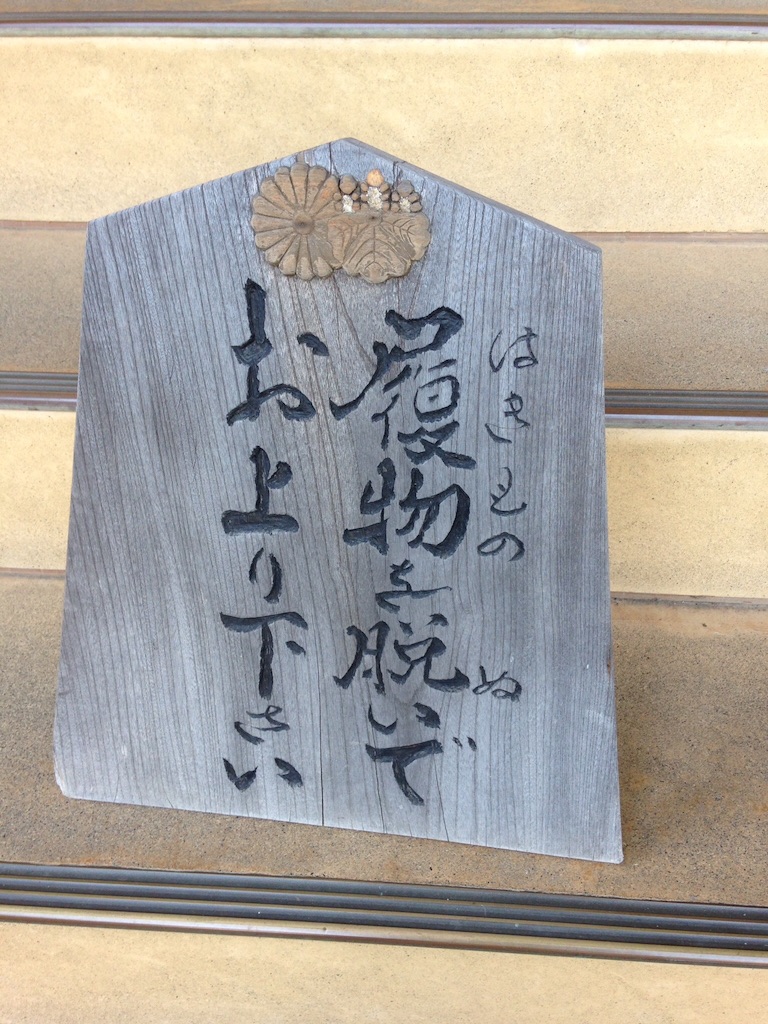 はきもの ぬ
履物を脱いで
お上り下さい